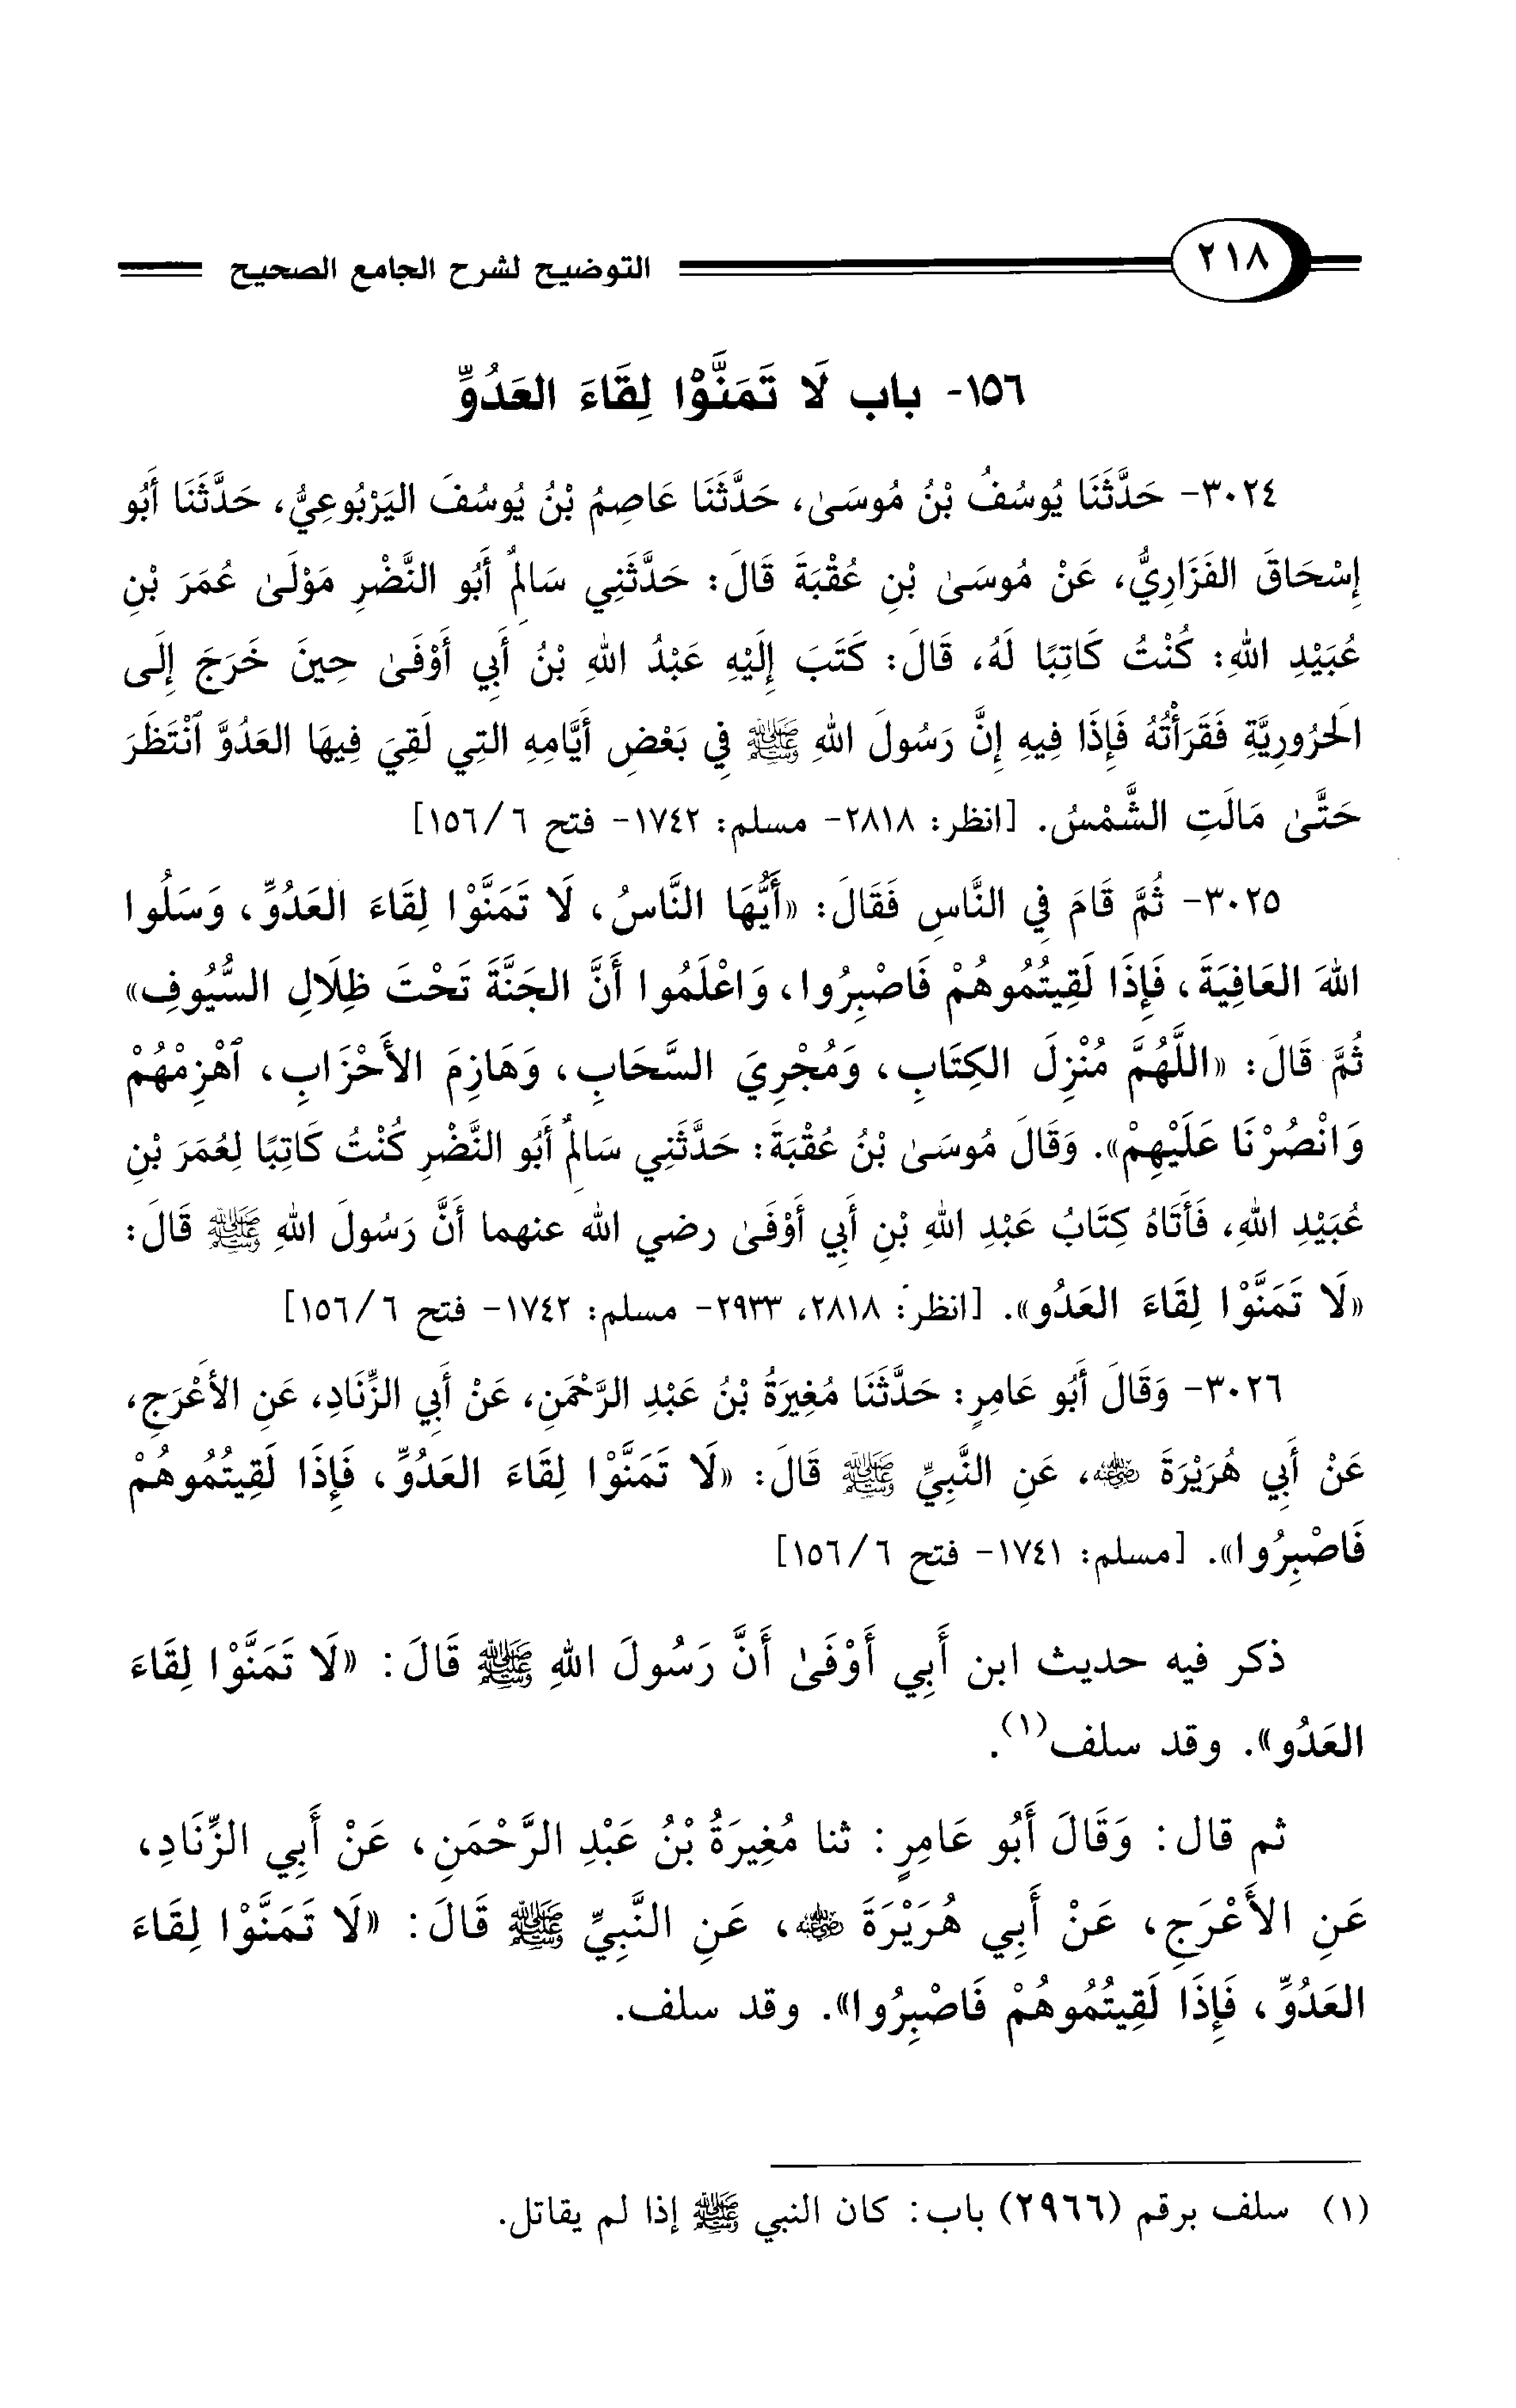 ٢١٨ التوضيح لشرح الجامع الصحيح
١٥٦- باب لَا تَمَنَّوْا لِقَاءَ العَدُوِّ
٣٠٢٤- حَدَّثَنَا يُوسُفُ بْنُ مُوسَىٰ، حَدَّثَنَا عَاصِمُ بْنُ يُوسُفَ اليَرْبُوعِيُّ، حَدَّثَنَا أَبُو
إِسْحَاقَ الفَزَارِيُّ، عَنْ مُوسَىٰ بْنِ عُقْبَةَ قَالَ: حَدَّثَنِي سَالِمٌ أَبُو النَّضْرِ مَوْلَىٰ عُمَرَ بْنِ
عُبَيْدِ اللهِ: كُنْتُ كَاتِبًا لَهُ، قَالَ: كَتَبَ إِلَيْهِ عَبْدُ اللهِ بْنُ أَبِي أَوْفَىٰ حِينَ خَرَجَ إِلَى
الَحرُورِيَّةِ فَقَرَأْتُهُ فَإِذَا فِيهِ إِنَّ رَسُولَ اللهِ ﷺ فِي بَعْضِ أَيَّامِهِ التِي لَقِيَ فِيهَا العَدُوَّ ٱنْتَظَرَ
حَتَّىٰ مَالَتِ الشَّمْسُ. [انظر: ٢٨١٨- مسلم: ١٧٤٢- فتح ٦/ ١٥٦]
٣٠٢٥- ثُمَّ قَامَ فِي النَّاسِ فَقَالَ: «أَيُّهَا النَّاسُ، لَا تَمَنَّوْا لِقَاءَ العَدُوِّ، وَسَلُوا
اللهَ العَافِيَةَ، فَإِذَا لَقِيتُمُوهُمْ فَاصْبِرُوا، وَاعْلَمُوا أَنَّ الجَنَّةَ تَحْتَ ظِلَالِ السُّيُوفِ»
ثُمَّ قَالَ: «اللَّهُمَّ مُنْزِلَ الكِتَابِ، وَمُجْرِيَ السَّحَابِ، وَهَازِمَ الأَحْزَابِ، ٱهْزِمْهُمْ
وَانْصُرْنَا عَلَيْهِمْ». وَقَالَ مُوسَىٰ بْنُ عُقْبَةَ: حَدَّثَنِي سَالِمٌ أَبُو النَّضْرِ كُنْتُ كَاتِبًا لِعُمَرَ بْنِ
عُبَيْدِ اللهِ، فَأَتَاهُ كِتَابُ عَبْدِ اللهِ بْنِ أَبِي أَوْفَىٰ رضي الله عنهما أَنَّ رَسُولَ اللهِ ﷺ قَالَ:
«لَا تَمَنَّوْا لِقَاءَ العَدُو». [انظر: ٢٨١٨، ٢٩٣٣- مسلم: ١٧٤٢- فتح ٦/ ١٥٦]
٣٠٢٦- وَقَالَ أَبُو عَامِرٍ: حَدَّثَنَا مُغِيرَةُ بْنُ عَبْدِ الرَّحْمَنِ، عَنْ أَبِي الزِّنَادِ، عَنِ الأَعْرَجِ،
عَنْ أَبِي هُرَيْرَةَ رضي الله عنه، عَنِ النَّبِيِّ ﷺ قَالَ: «لَا تَمَنَّوْا لِقَاءَ العَدُوِّ، فَإِذَا لَقِيتُمُوهُمْ
فَاصْبِرُوا». [مسلم: ١٧٤١- فتح ٦/ ١٥٦]
ذكر فيه حديث ابن أَبِي أَوْفَىٰ أَنَّ رَسُولَ اللهِ ﷺ قَالَ: «لَا تَمَنَّوْا لِقَاءَ
العَدُو». وقد سلف(١).
ثم قال: وَقَالَ أَبُو عَامِرٍ: ثنا مُغِيرَةُ بْنُ عَبْدِ الرَّحْمَنِ، عَنْ أَبِي الزِّنَادِ،
عَنِ الأَعْرَجِ، عَنْ أَبِي هُرَيْرَةَ رضي الله عنه، عَنِ النَّبِيِّ ﷺ قَالَ: «لَا تَمَنَّوْا لِقَاءَ
العَدُوِّ، فَإِذَا لَقِيتُمُوهُمْ فَاصْبِرُوا». وقد سلف.
(١) سلف برقم (٢٩٦٦) باب: كان النبي ﷺ إذا لم يقاتل.